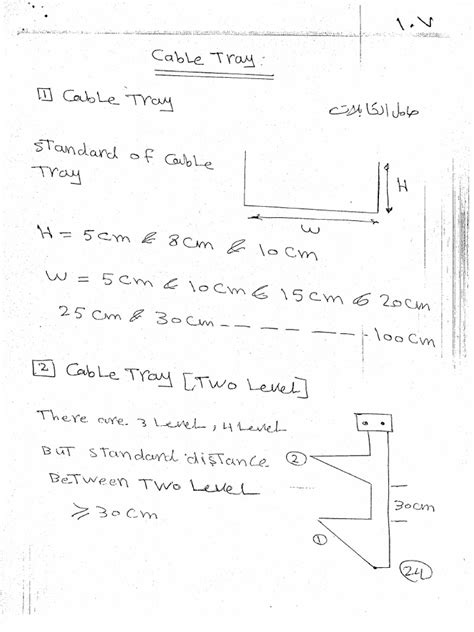 ١٠٧
Cable Tray:
1 Cable Tray
حامل الكابلات
Standard of Cable
Tray
H
W
H = 5cm & 8cm & 10cm
W = 5cm & 10cm & 15cm & 20cm
25cm & 30cm ------100cm
2 Cable Tray [Two Level]
There are 3 Level, 4 Level
But standard distance
Between Two Level
≥ 30cm
2
30cm
1
24